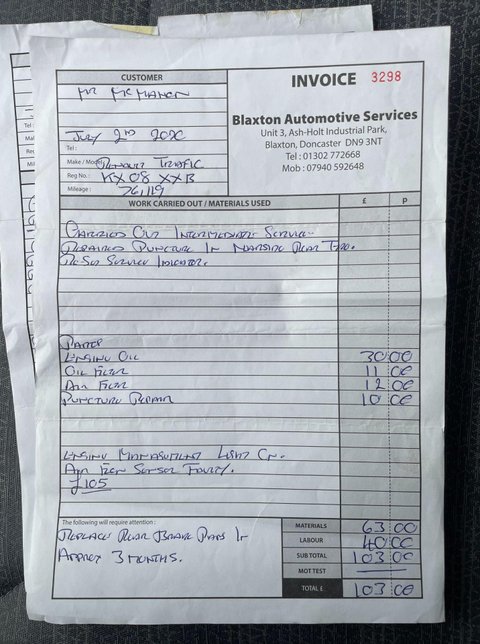 INVOICE 3298
CUSTOMER
Mr McMahon
Blaxton Automotive Services
Unit 3, Ash-Holt Industrial Park,
Blaxton, Doncaster DN9 3NT
Tel : 01302 772668
Mob : 07940 592648
July 2nd
Tel :
Make / Model: Renault Traffic
Reg No.: KX08 XXB
Mileage : 76,119
WORK CARRIED OUT / MATERIALS USED £ p
Carried Out Intermediate Service.
Repaired Puncture In Nearside Rear Tyre.
Re-Set Service Indicator.
Parts
Engine Oil 30 00
Oil Filter 11 00
Air Filter 12 00
Puncture Repair 10 00
Engine Management Light On.
Air Flow Sensor Faulty.
£105
The following will require attention :
Replace Rear Brake Pads In
Approx 3 Months.
MATERIALS 63 00
LABOUR 40 00
SUB TOTAL 103 00
MOT TEST
TOTAL £ 103 00